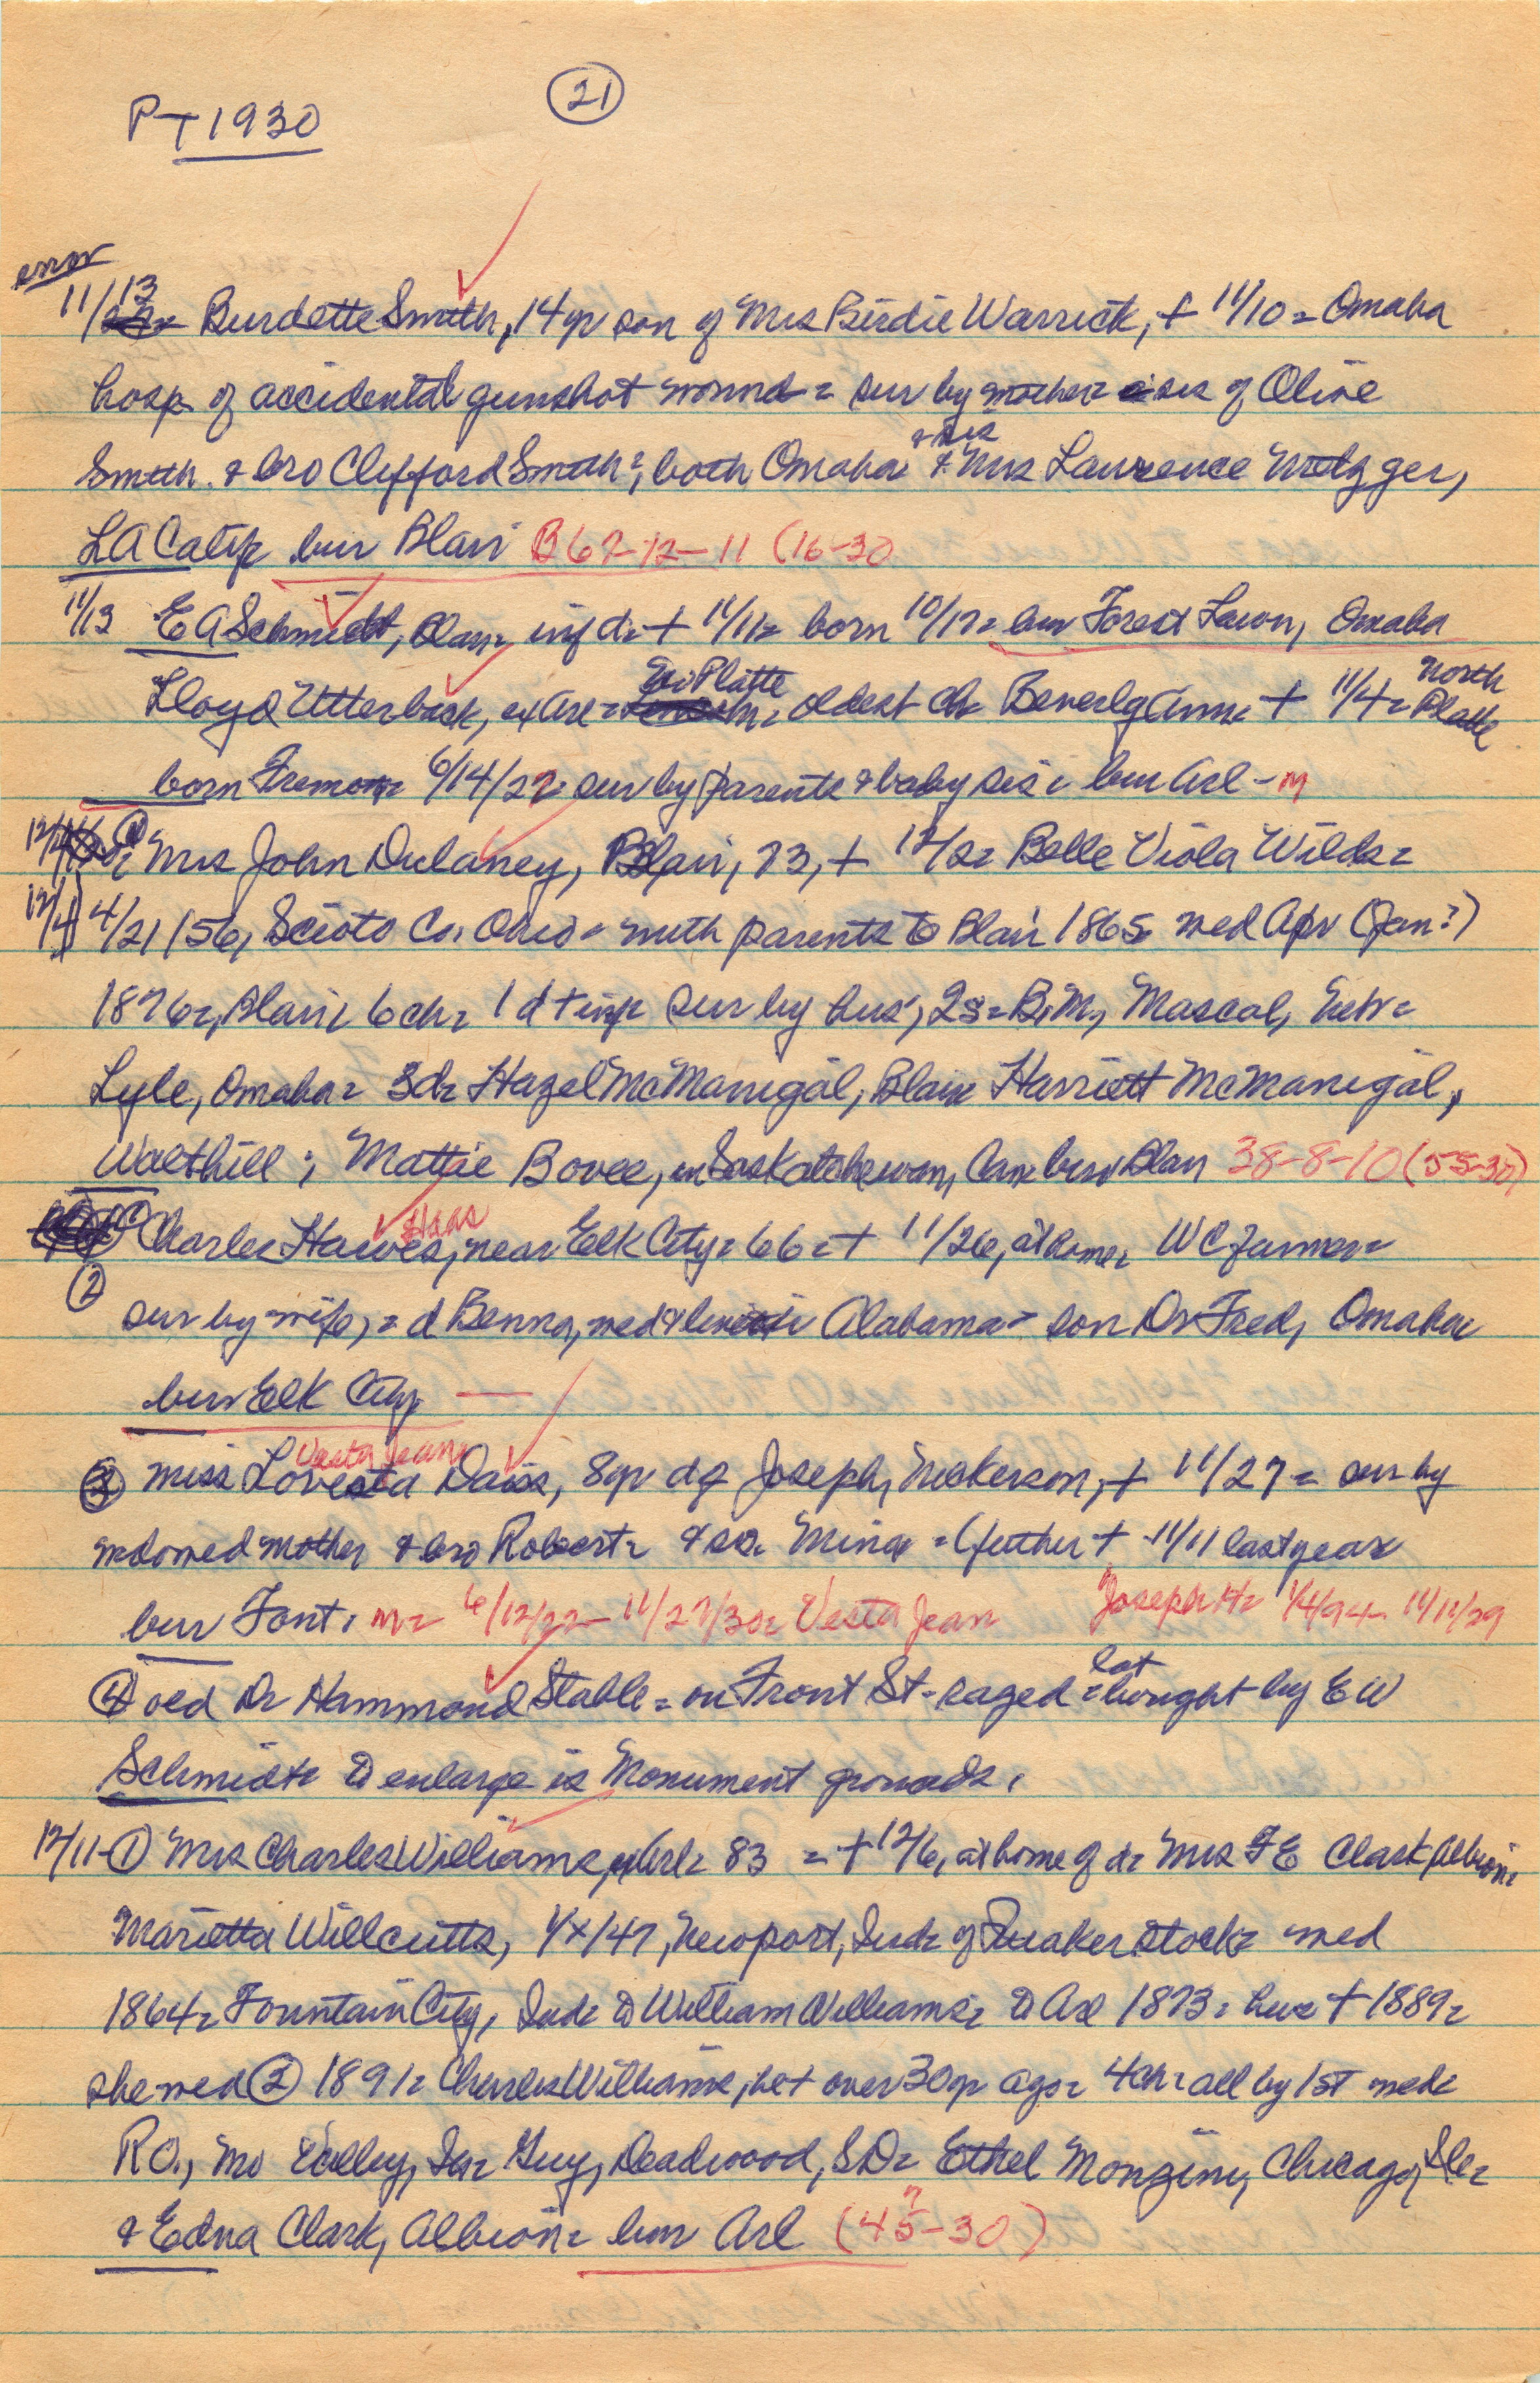 PT 1930
21
error
11/13 Burdette Smith, 14 yr son of Mrs Birdie Warrick, + 11/10 = Omaha
hosp of accidental gunshot wound = sur by mother = sis of Olive
Smith. & bro Clifford Smith; both Omaha & sis & Mrs Lawrence Metzger,
LA Calif bur Blair B 67-12-11 (16-30
11/13 EA Schmidt, Blair inf d = + 11/11 = born 10/17 = bur Forest Lawn, Omaha
Lloyd Utterback, ex Arl = No Platte = oldest ch Beverly Ann = + 11/4 = North Platte
born Fremont 6/14/27 = sur by parents & baby sis = bur Arl - M
12/4 ① Mrs John Dulaney, Blair, 73, + 12/2 = Belle Viola Wilds =
12/4 4/21/56, Scioto Co. Ohio = with parents to Blair 1865 wed Apr (Jan?)
1876 = Blair 6 ch = 1 d + inf = sur by hus; 2s = B.M., Mascal, Nebr =
Lyle, Omaha = 3d = Hazel McManigal, Blair Harriett McManigal,
Walthill; Mattie Bovee, in Saskatchewan, Can bur Blair 38-8-10 (55-30)
② Charles Hawes, Haas near Elk City = 66 = + 11/26, at home = WC farmer =
sur by wife, = d Benna, wed & live in Alabama = son Dr Fred, Omaha
bur Elk City —
③ Miss Lovesta Vesta Jean Davis, 8 yr d of Joseph, Nickerson, + 11/27 = sur by
widowed mother & bro Robert = & sis Mina = (father + 11/11 last year
bur Font. M = 6/12/22 - 11/27/30 = Vesta Jean Joseph H = 1/4/94 - 11/11/29
④ old Dr Hammond Stable = on Front St - razed = lot bought by EW
Schmidt = to enlarge is Monument grounds.
12/11 - ① Mrs Charles Williams, ex Arl = 83 = + 12/6, at home of d = Mrs FE Clark Albion =
Marietta Willcutts, 1/x/47, Newport, Ind = of Quaker stock = wed
1864 = Fountain City, Ind = to William Williams = to Arl 1873 = hus + 1889 =
she wed ② 1891 = Charles Williams, he + over 30 yr ago = 4 ch = all by 1st wed =
RO., Mo Valley, Ia = Guy, Deadwood, SD = Ethel Monzing, Chicago, Ill =
& Edna Clark, Albion = bur Arl (45-30) ?